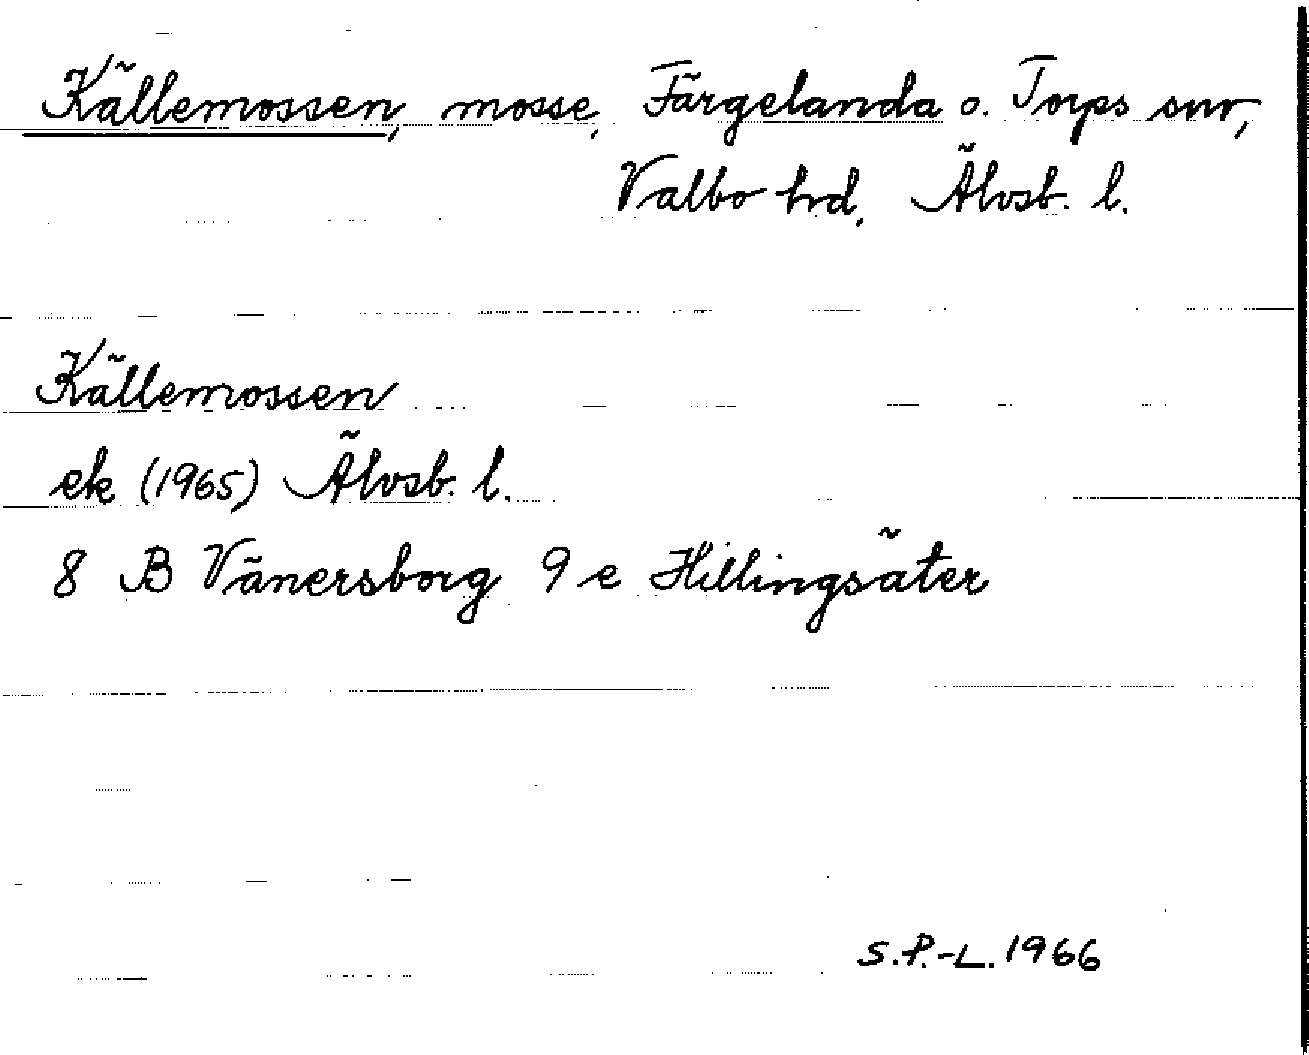 Källemossen, mosse, Färgelanda o. Torps snr,
Valbo hrd, Älvsb. l.
Källemossen
ek (1965) Älvsb. l.
8 B Vänersborg 9 e Hillingsäter
S.P.-L. 1966